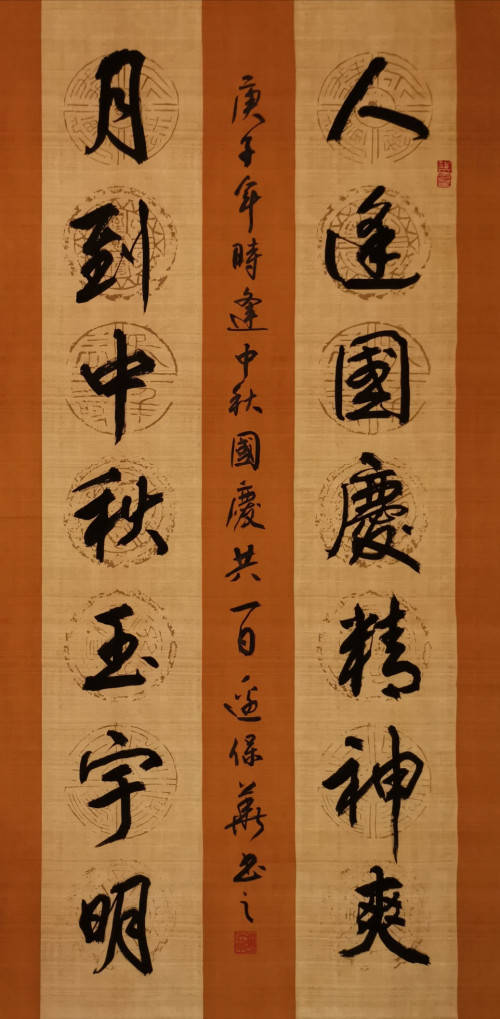 人逢國慶精神爽
庚子年時逢中秋國慶共一日保華書之
月到中秋玉宇明